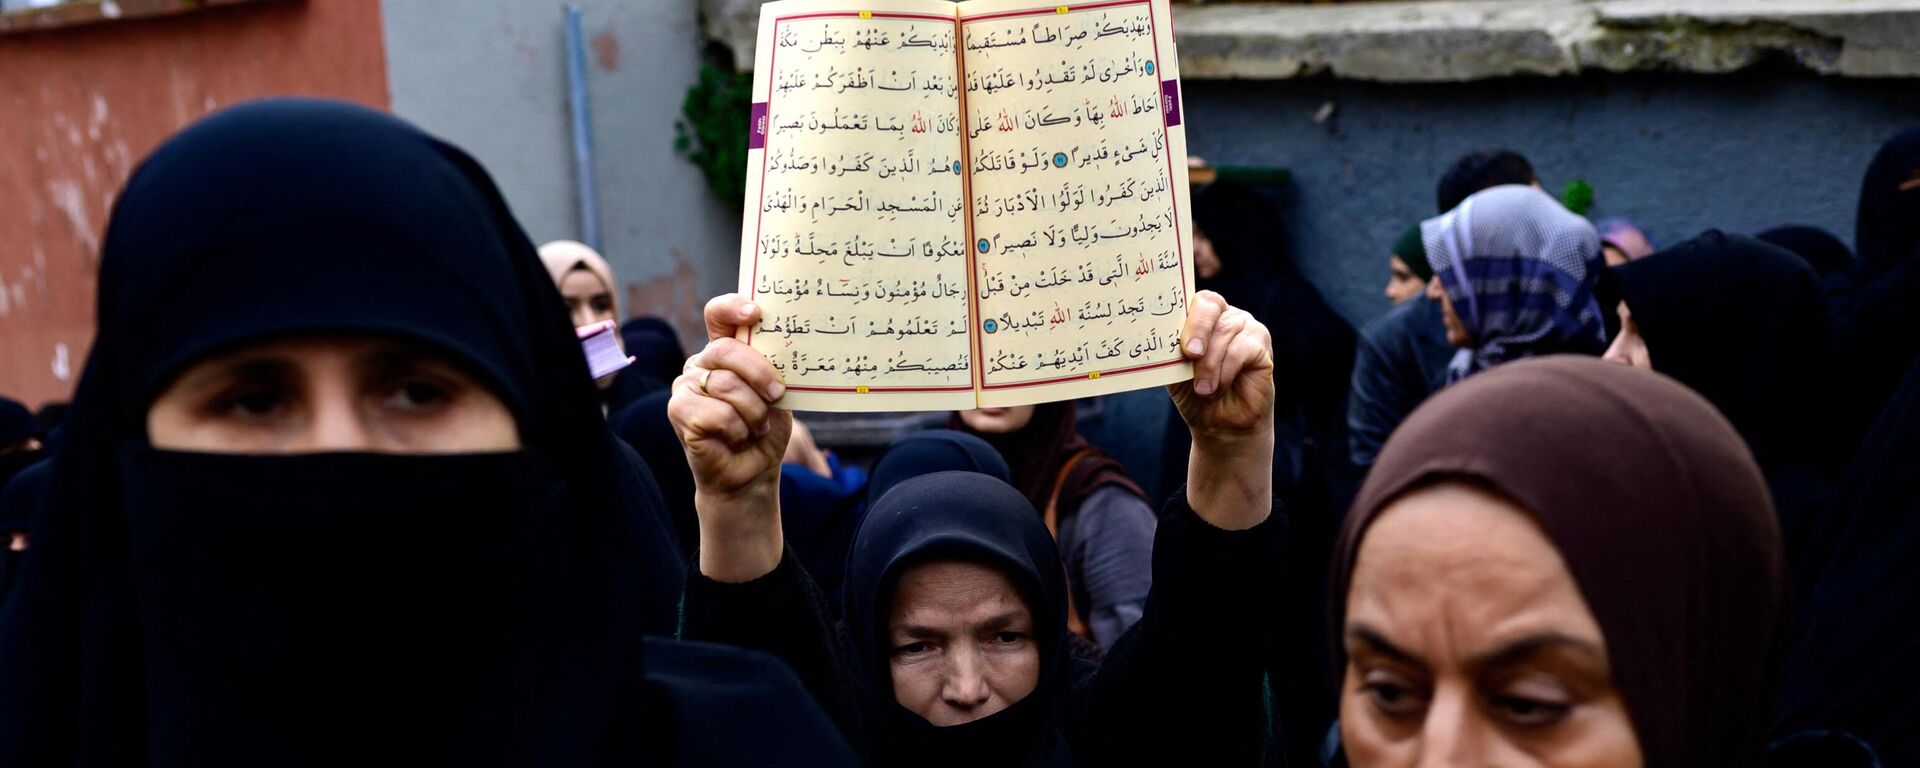 وَيَهْدِيَكُمْ صِرَاطًا مُسْتَقِيمًا
وَأُخْرٰى لَمْ تَقْدِرُوا عَلَيْهَا قَدْ
اَحَاطَ اللّٰهُ بِهَا وَكَانَ اللّٰهُ عَلٰى
كُلِّ شَىْءٍ قَدِيرًا ﴿٢١﴾ وَلَوْ قَاتَلَكُمُ
الَّذِينَ كَفَرُوا لَوَلَّوُا الْاَدْبَارَ ثُمَّ
لَا يَجِدُونَ وَلِيًّا وَلَا نَصِيرًا ﴿٢٢﴾
سُنَّةَ اللّٰهِ الَّتِى قَدْ خَلَتْ مِنْ قَبْلُ
وَلَنْ تَجِدَ لِسُنَّةِ اللّٰهِ تَبْدِيلًا ﴿٢٣﴾
هُوَ الَّذِى كَفَّ اَيْدِيَهُمْ عَنْكُمْ
وَاَيْدِيَكُمْ عَنْهُمْ بِبَطْنِ مَكَّةَ
مِنْ بَعْدِ اَنْ اَظْفَرَكُمْ عَلَيْهِمْ
وَكَانَ اللّٰهُ بِمَا تَعْمَلُونَ بَصِيرًا
هُمُ الَّذِينَ كَفَرُوا وَصَدُّوكُمْ
عَنِ الْمَسْجِدِ الْحَرَامِ وَالْهَدْىَ
مَعْكُوفًا اَنْ يَبْلُغَ مَحِلَّهُ وَلَوْلَا
رِجَالٌ مُؤْمِنُونَ وَنِسَاءٌ مُؤْمِنَاتٌ
لَمْ تَعْلَمُوهُمْ اَنْ تَطَؤُهُمْ
فَتُصِيبَكُمْ مِنْهُمْ مَعَرَّةٌ